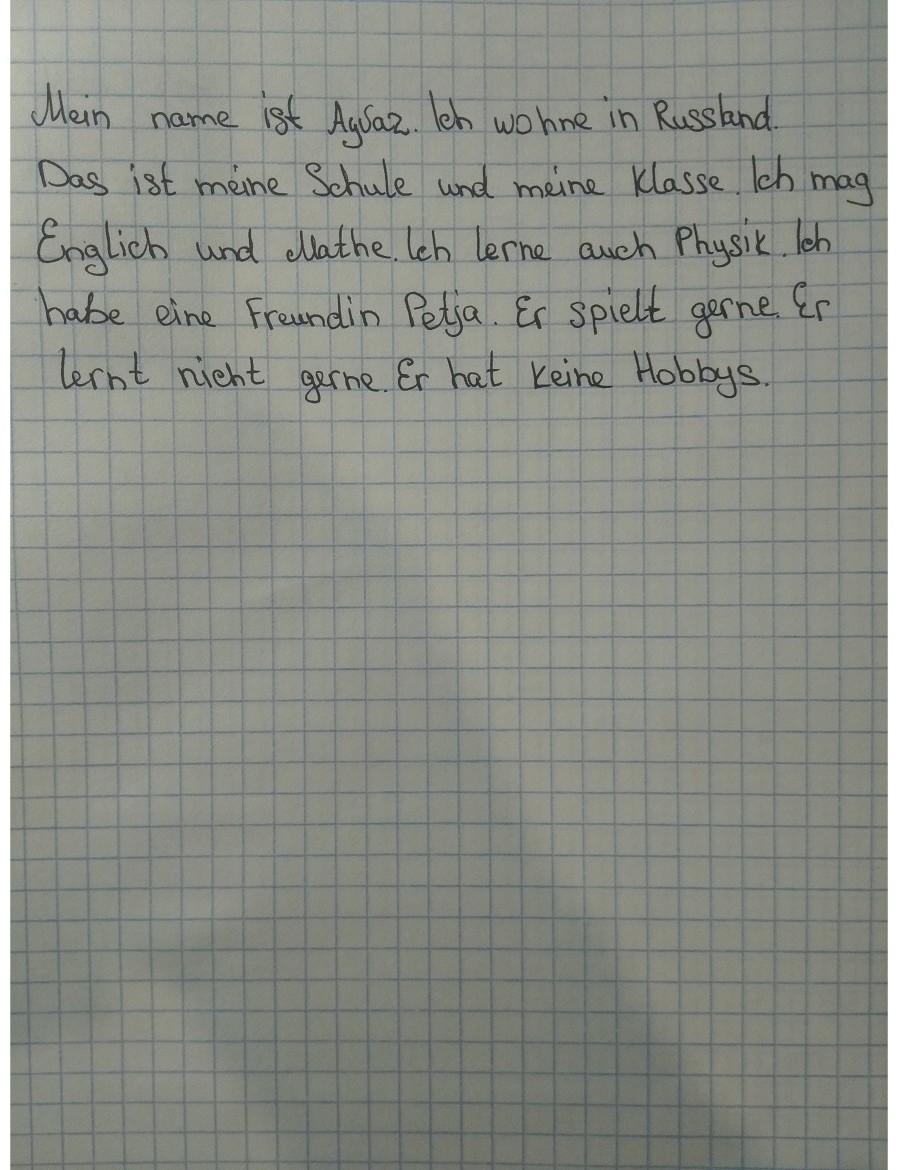 Mein name ist Aygaz. Ich wohne in Russland.
Das ist meine Schule und meine Klasse. Ich mag
Englich und Mathe. Ich lerne auch Physik. Ich
habe eine Freundin Petja. Er spielt gerne. Er
lernt nicht gerne. Er hat keine Hobbys.